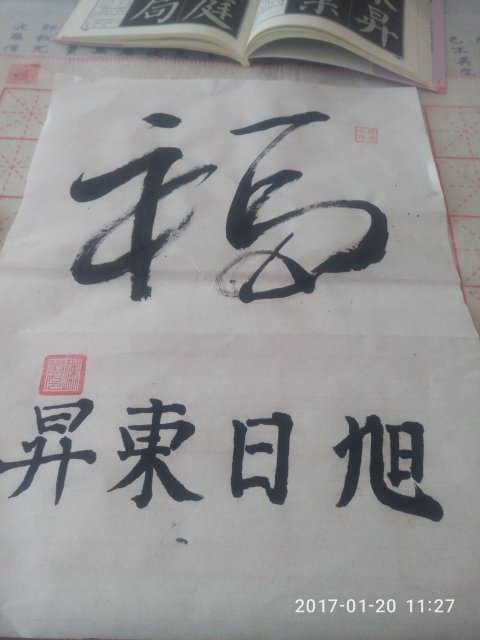 局庭
昇
福
旭日東昇
2017-01-20 11:27